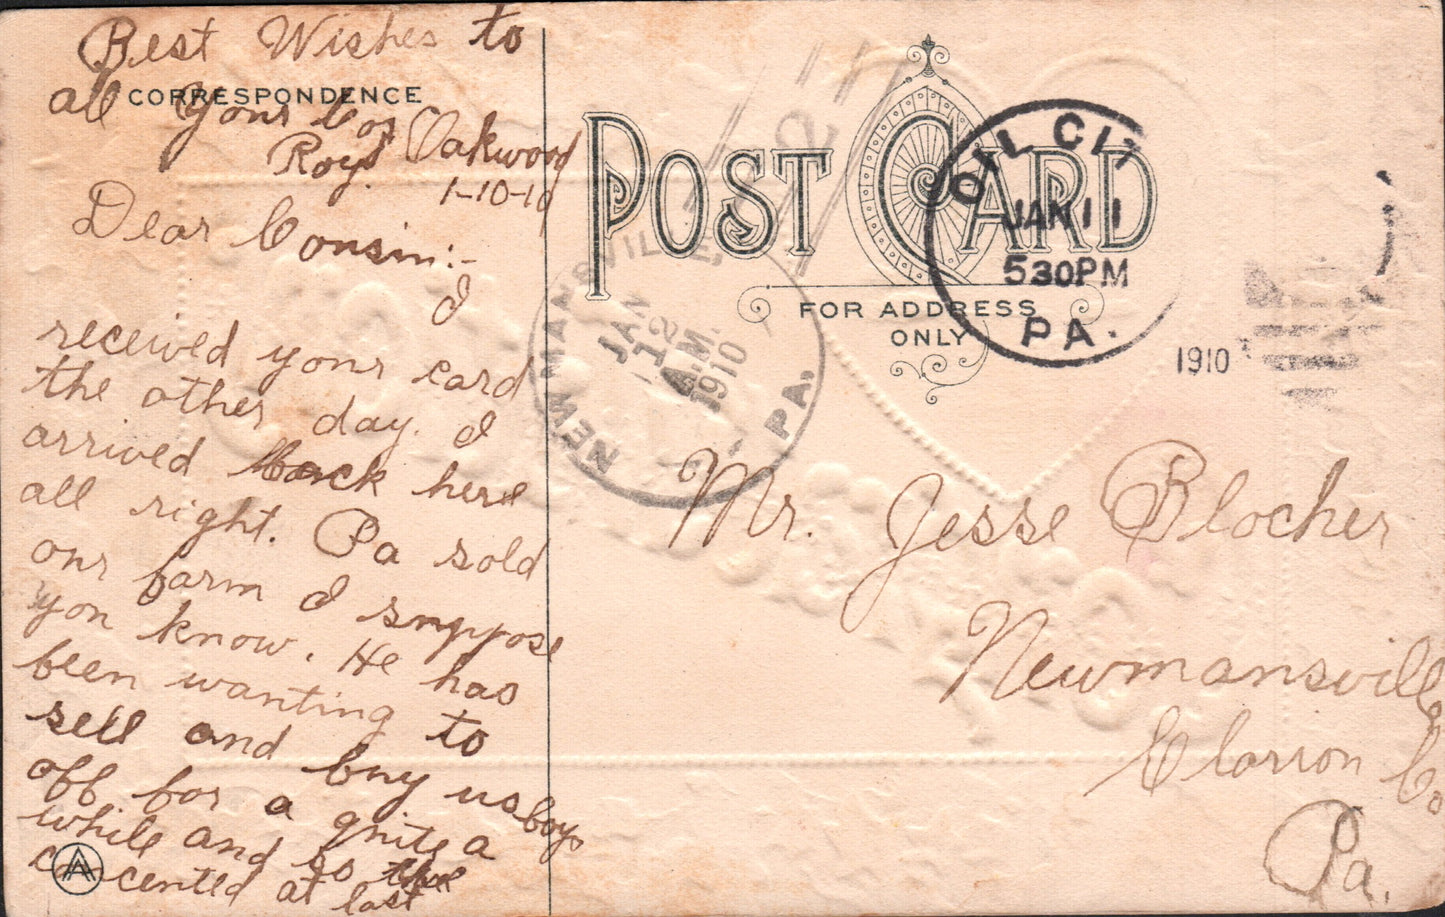 Best Wishes to
all Your Coz
Roy.
Oakwood
1-10-10
CORRESPONDENCE
Dear Cousin:-
I
received your card
the other day. I
arrived back here
all right. Pa sold
our farm I suppose
you know. He has
been wanting to
sell and buy us boys
off for a quite a
while and so
concented at last
POST CARD
FOR ADDRESS
ONLY
OIL CIT
JAN 11
530PM
PA.
1910
NEWMANSVILLE,
JAN
12
A.M.
1910
PA.
Mr. Jesse Blocher
Newmansville
Clarion Co
Pa.